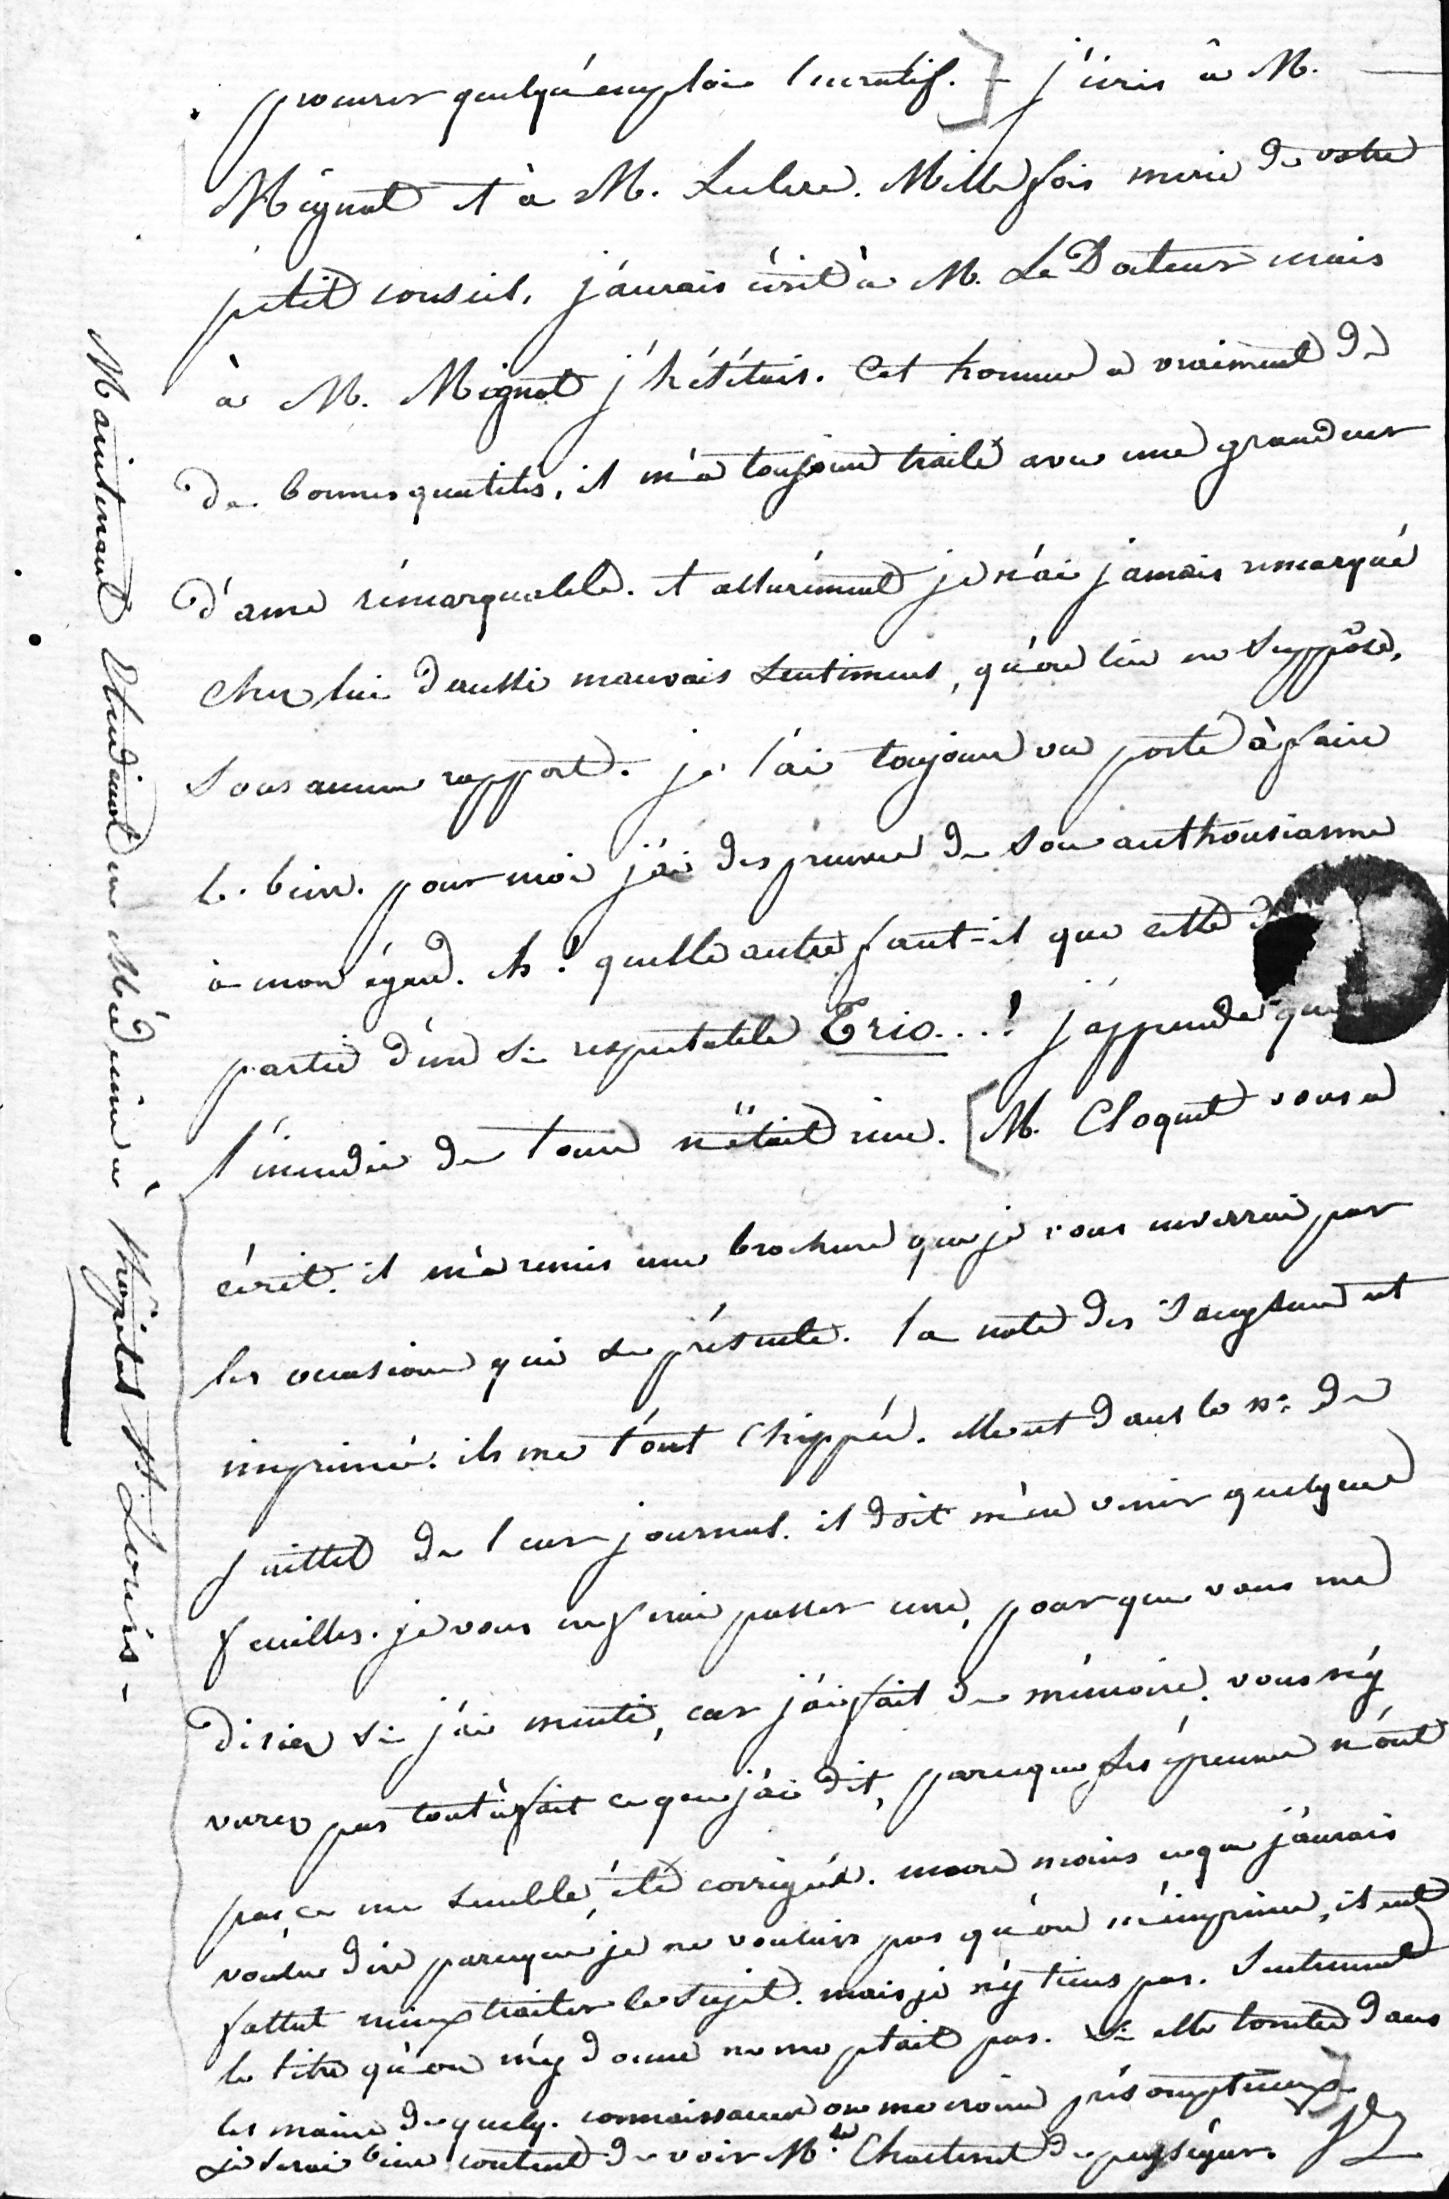 procurer quelqu'emploi lucratif.] j'écris à M.
Mignot et à M. Leclerc. Mille fois merci de votre
petit conseil, j'aurais écrit à M. Le Docteur mais
à M. Mignot j'hésitais. Cet homme a vraiment de
de bonnes qualités, il m'a toujours traité avec une grandeur
d'ame rémarquable. et assurément je n'ai jamais remarqué
chez lui d'aussi mauvais sentimens, qu'on lui en suppôse,
sous aucun rapport. je l'ai toujours vu porté à faire
le bien. pour moi j'ai des preuves de son anthousiasme
à mon égard. Ah! quelle autre faut-il que cette
partie d'un si respectable Trio...! j'apprends que
l'incendie de Tours n'était rien. [M. Cloquet vous a
écrit. il m'a remis une brochure que je vous enverrai par
les occasions qui se présente. la note des Sangsues est
imprimée. ils me l'ont chippée. elle est dans le no. de
juillet de leur journal. il doit m'en venir quelques
feuilles. je vous en ferai passer une, pour que vous me
disiez si j'ai menti, car j'ai fait de mémoire. vous n'y
verez pas tout à fait ce que j'ai dit, parceque les épreuves n'ont
pas, ce me semble, été corrigées. encore moins ce que j'aurais
voulu dire parceque je ne voulais pas qu'on m'imprime, il eut
fallut mieux traiter le sujet. mais je n'y tiens pas. Seulement
le titre qu'on m'y donne ne me plait pas. Si elle tombe dans
les mains de quelq. connaissances on me croira présomptueux]
Je serai bien content de voir M.de Chastenet de puységur.
Maintenant Etudiant en Médecine à l'hopital St Louis -